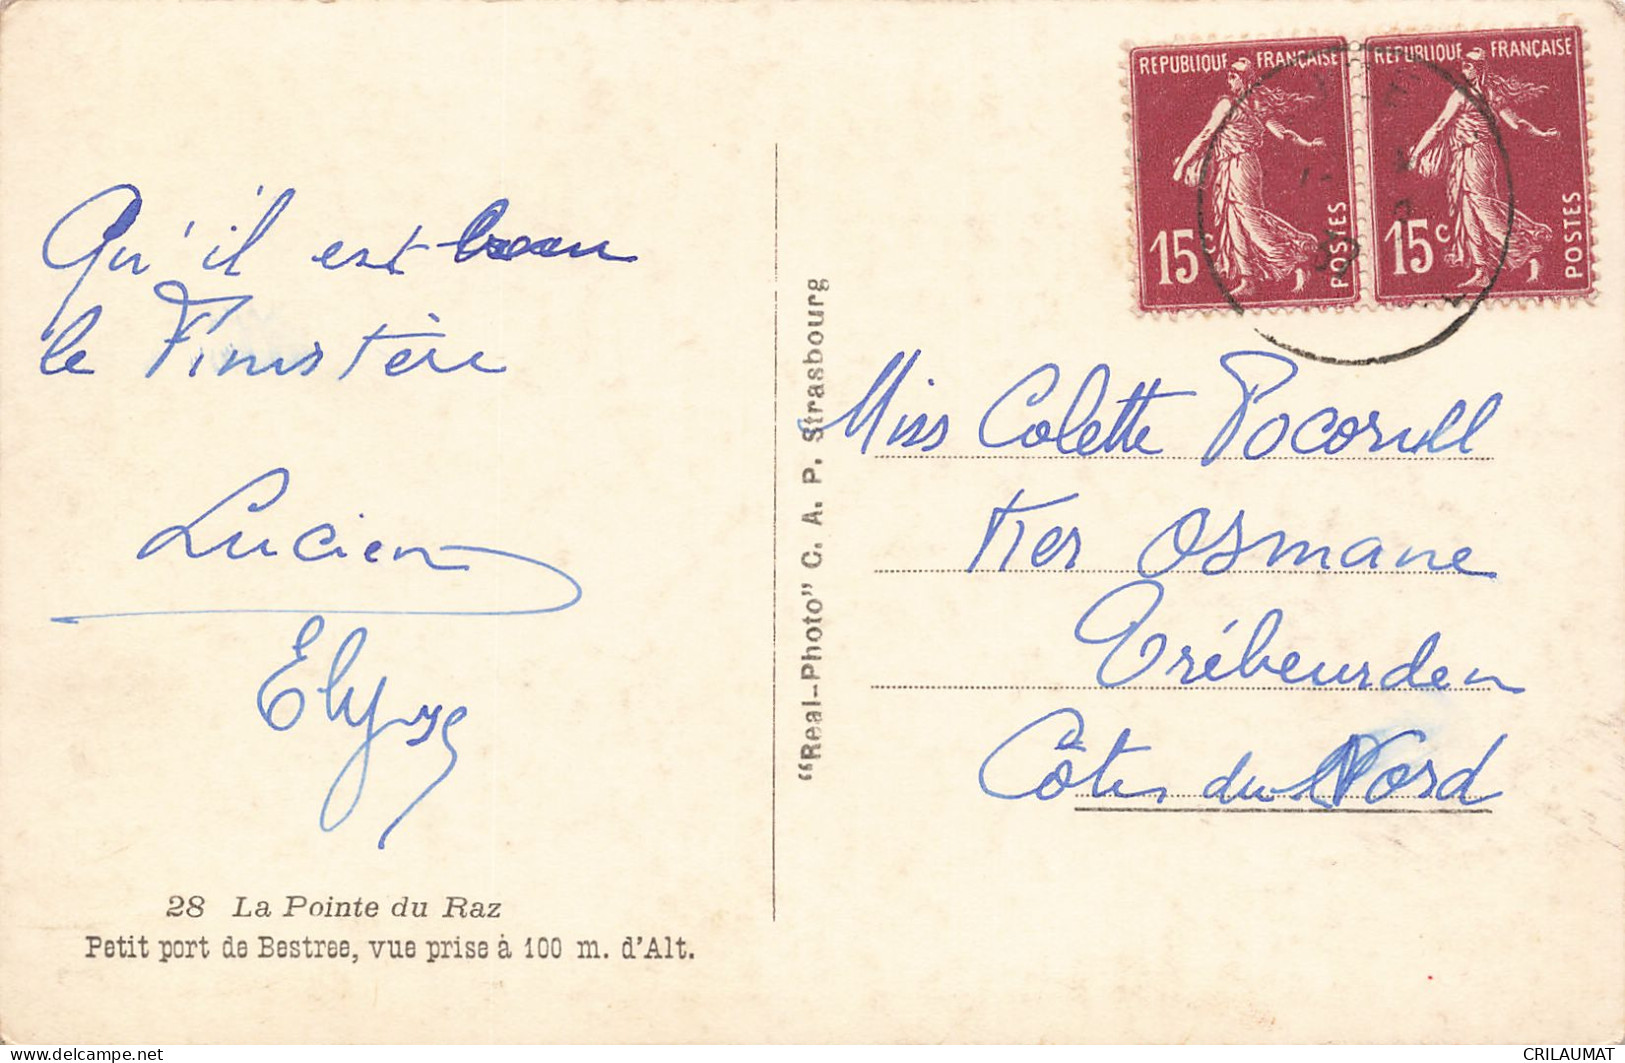 REPUBLIQUE FRANÇAISE
15c
POSTES
REPUBLIQUE FRANÇAISE
15c
POSTES
37
Qu'il est beau
le Finistère
Lucien
28 La Pointe du Raz
Petit port de Bestree, vue prise à 100 m. d'Alt.
"Real-Photo" C. A. P. Strasbourg
Miss Colette
Ker Osmane
Trébeurden
Côtes du Nord
www.delcampe.net
CRILAUMAT